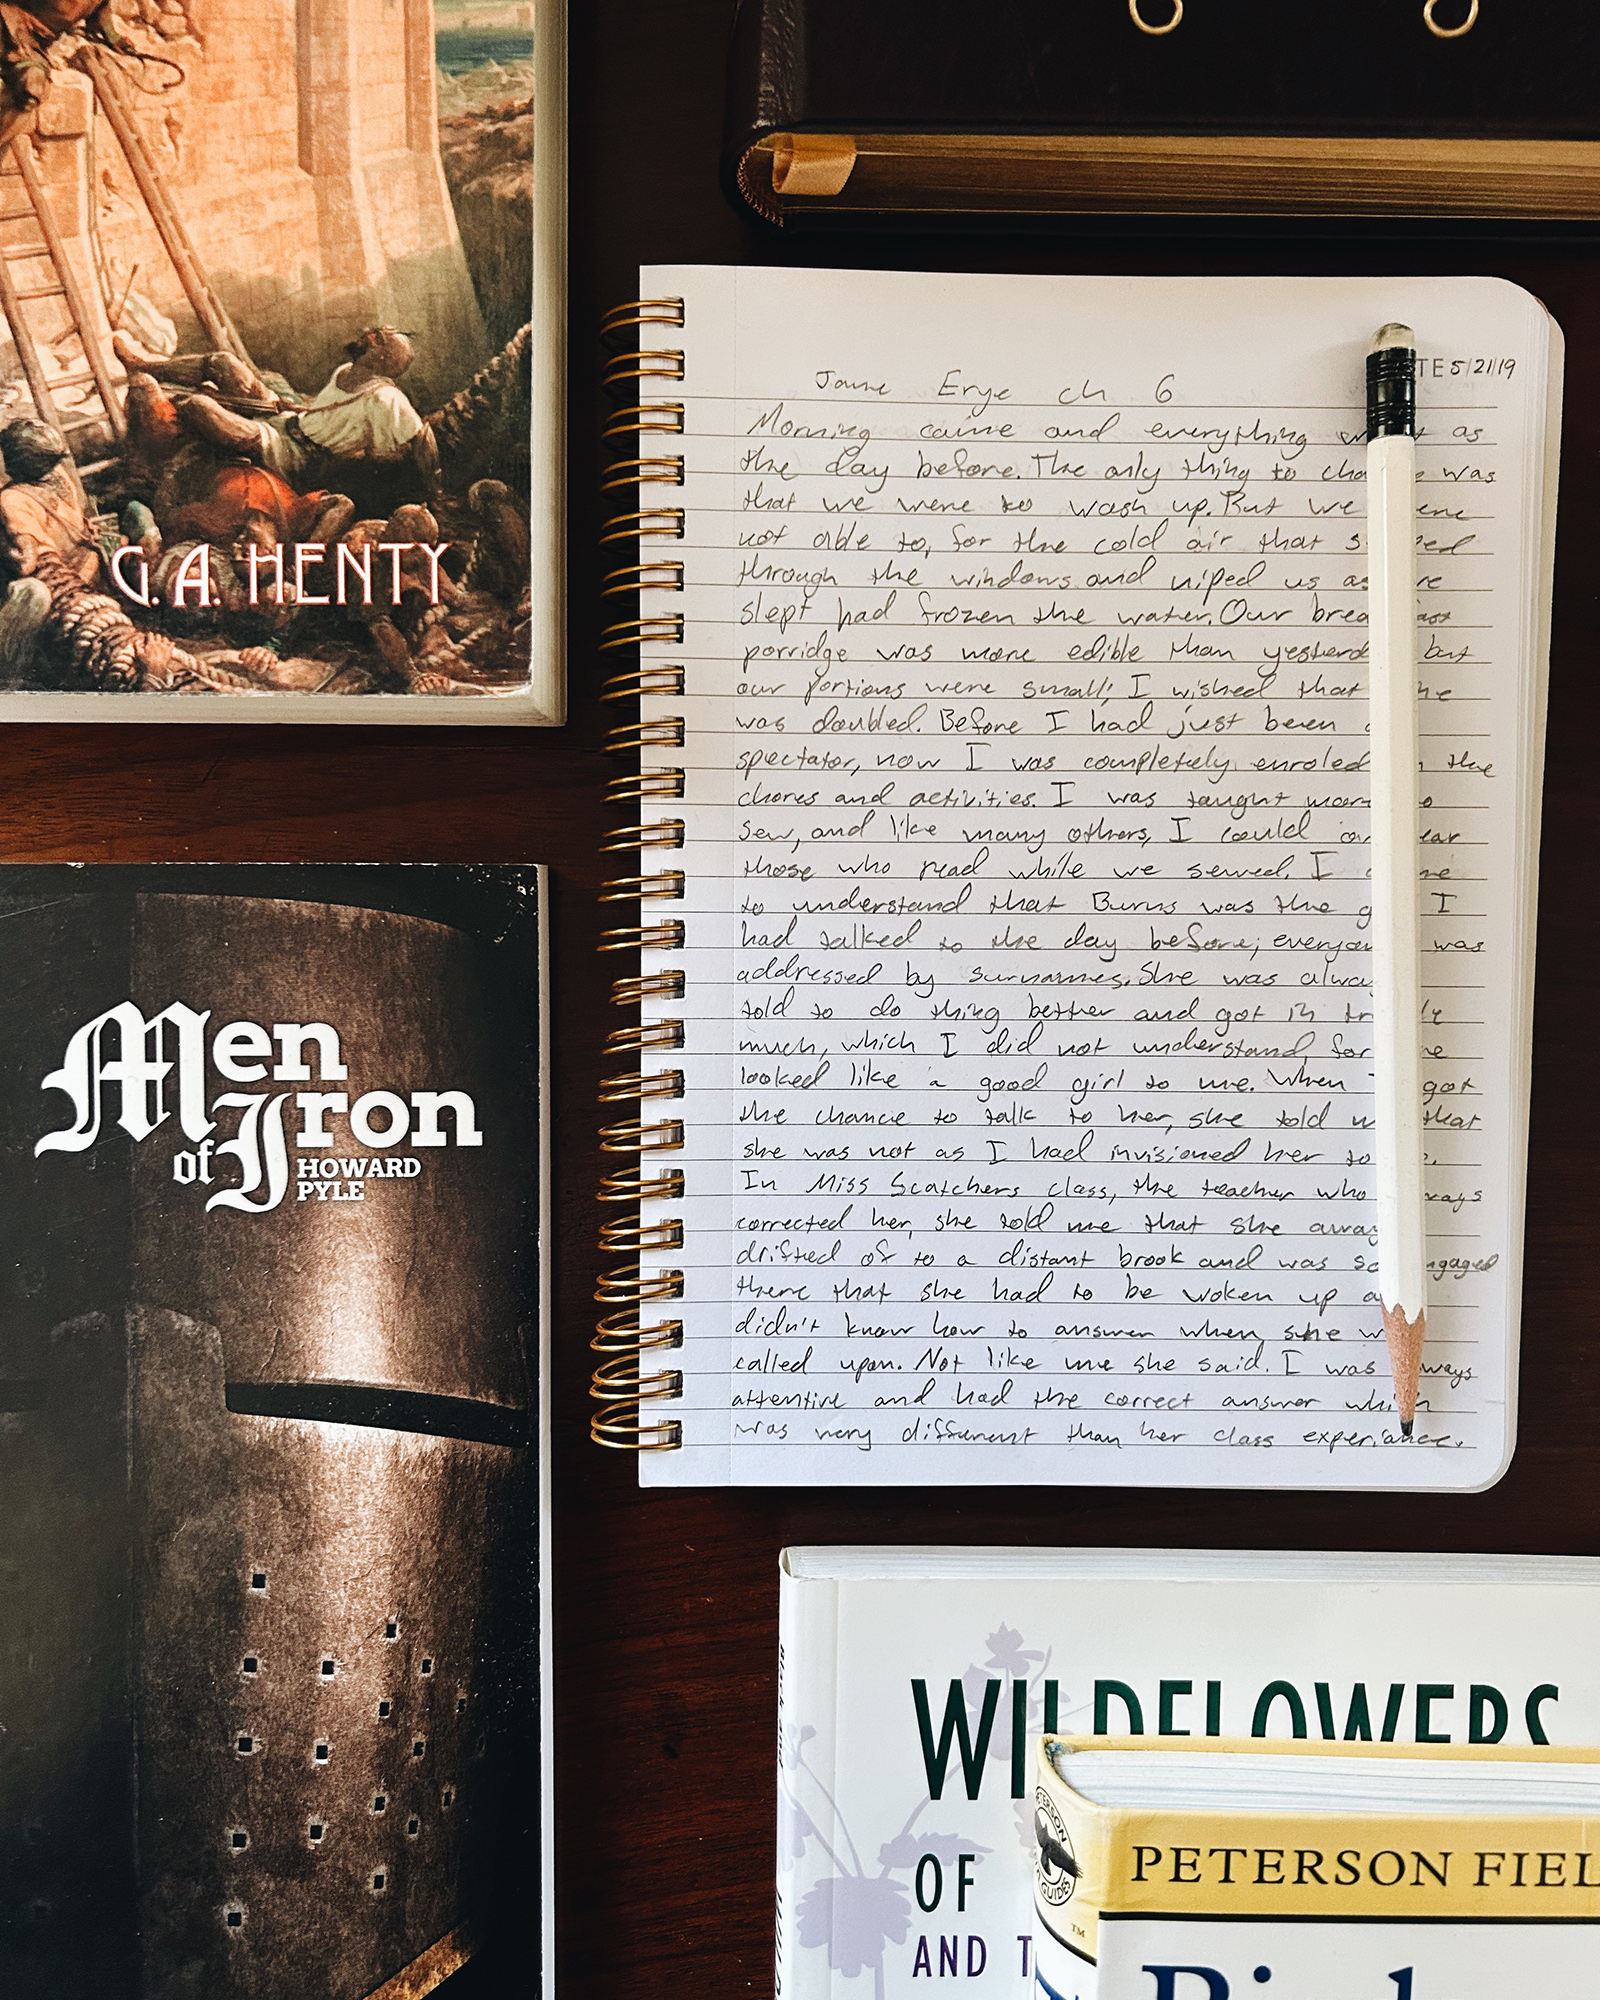 G.A. HENTY
Men
of Iron
HOWARD
PYLE
TE 5/21/19
Jane Erye ch 6
Morning came and everything as
the day before. The only thing to was
that we were to wash up. But we
not able to, for the cold air that
through the windows and niped us as
slept had frozen the water. Our
porridge was more edible than but
our portions were small; I wished that
was doubled. Before I had just been
spectator, now I was completely enroled the
chores and activities. I was taught
sew, and like many others, I could
those who read while we sewed. I
to understand that Burns was the I
had talked to the day before; was
addressed by surnames. She was
told to do thing better and got in
much, which I did not understand, for
looked like a good girl to me. When got
the chance to talk to her, she told that
she was not as I had invisioned her to
In Miss Scatchers class, the teacher who
corrected her, she told me that she
drifted of to a distant brook and was
there that she had to be woken up
didn't know how to answer when she
called upon. Not like me she said. I was
attentive and had the correct answer
was very different than her class experiance.
WILDFLOWERS
OF
AND T
PETERSON FIEL
PETERSON
GUIDES
TM